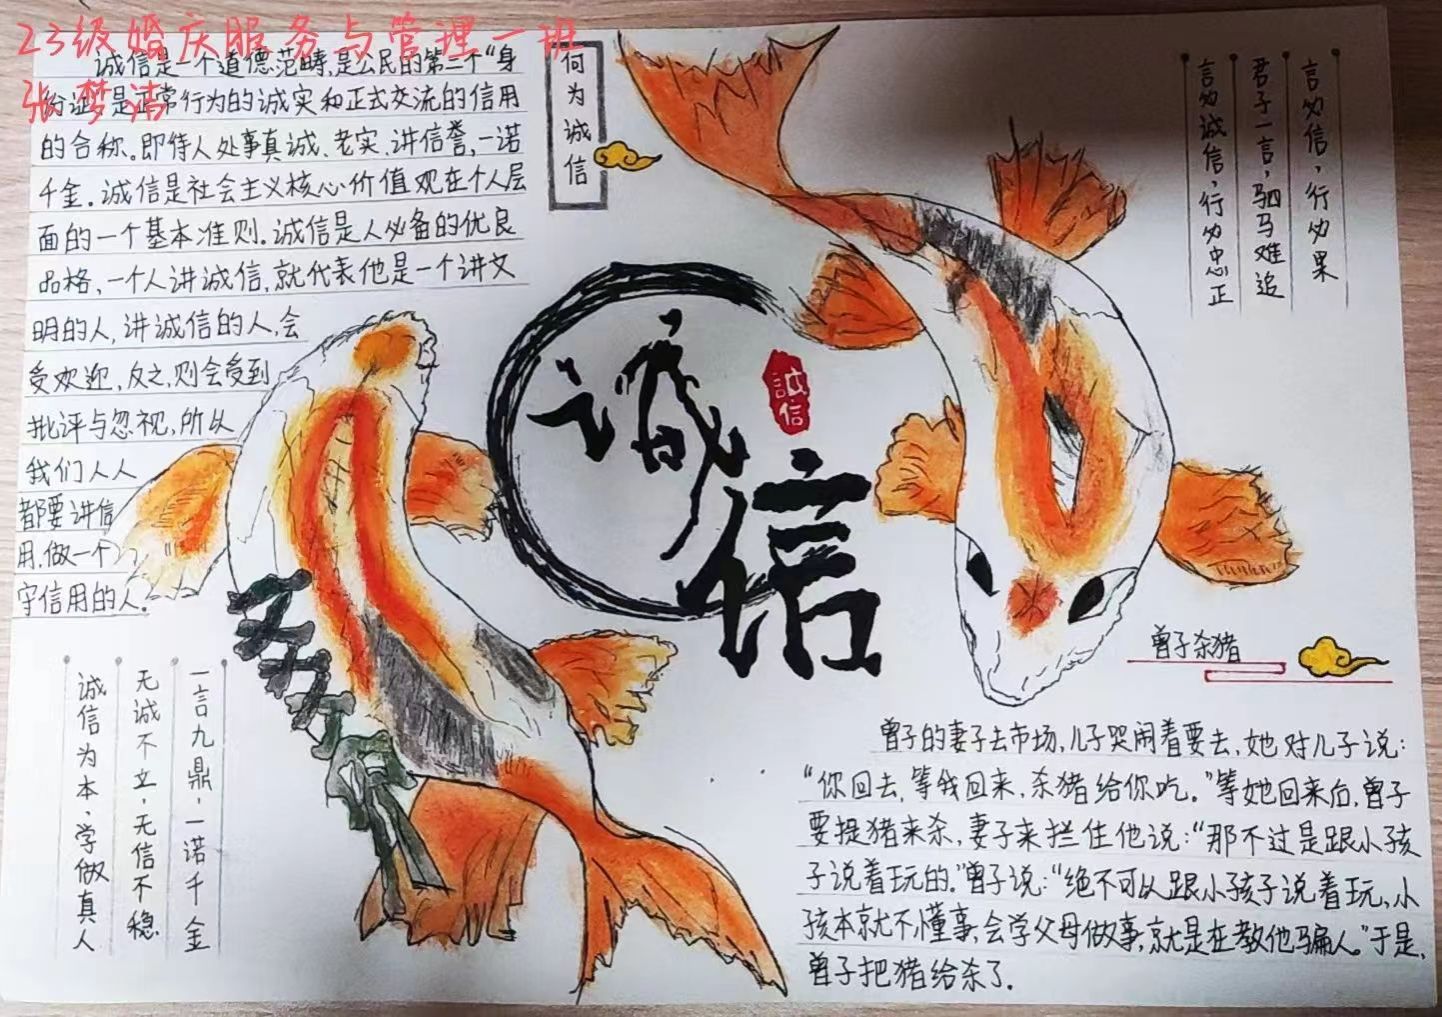 23级婚庆服务与管理一班
张梦洁
诚信是一个道德范畴,是公民的第二个“身
份证”是正常行为的诚实和正式交流的信用
的合称。即待人处事真诚、老实、讲信誉,一诺
千金。诚信是社会主义核心价值观在个人层
面的一个基本准则。诚信是人必备的优良
品格,一个人讲诚信,就代表他是一个讲文
明的人,讲诚信的人,会
受欢迎,反之,则会受到
批评与忽视,所以
我们人人
都要讲信
用,做一个
守信用的人。
何为诚信
诚
信
誠信
言必信,行必果
君子一言,驷马难追
言必诚信,行必忠正
一言九鼎,一诺千金
无诚不立,无信不稳
诚信为本,学做真人
曾子杀猪
曾子的妻子去市场,儿子哭闹着要去,她对儿子说:
“你回去,等我回来,杀猪给你吃。”等她回来后,曾子
要提猪来杀,妻子来拦住他说:“那不过是跟小孩
子说着玩的。”曾子说:“绝不可以跟小孩子说着玩,小
孩本就不懂事,会学父母做事,就是在教他骗人。”于是,
曾子把猪给杀了.